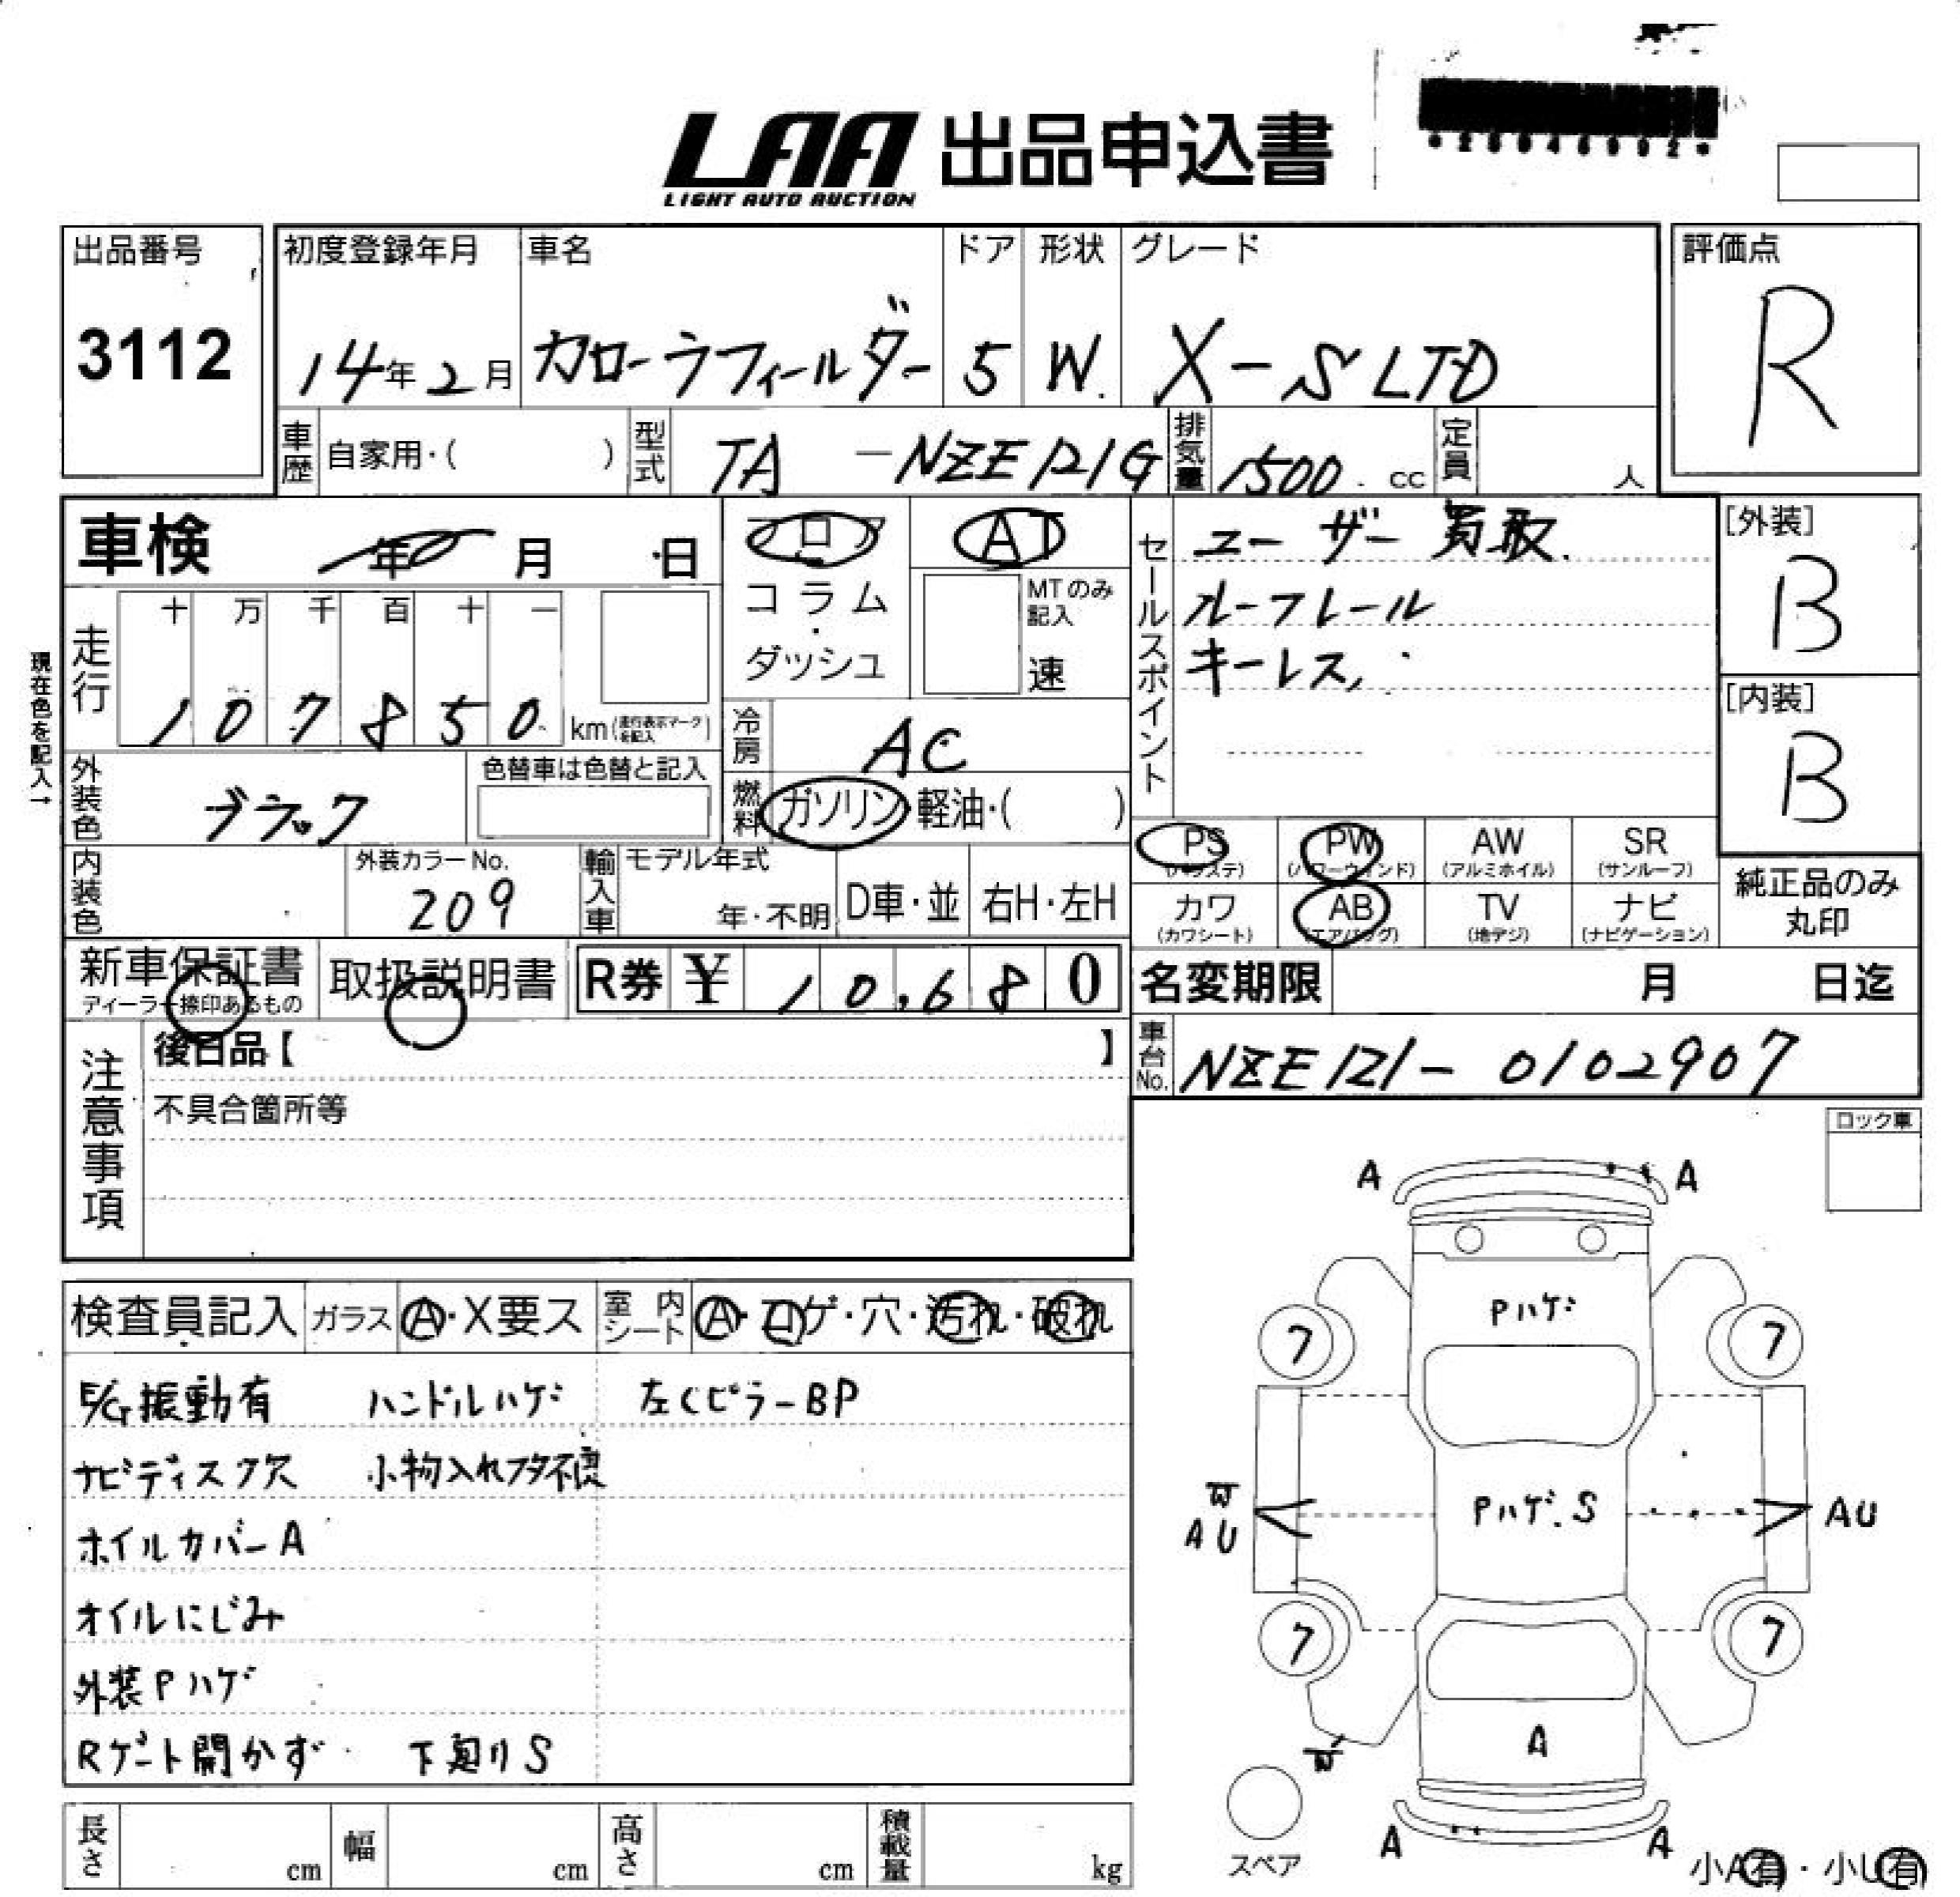 LAA 出品申込書
LIGHT AUTO AUCTION
出品番号
3112
初度登録年月
14年2月
車名
カローラフィールダー
ドア
5
形状
W.
グレード
X-S LTD
評価点
R
車歴 自家用・( )
型式 TA -NZE121G
排気量 1500 cc
定員 人
車検 年 月 日
フロア
コラム・ダッシュ
AT
MTのみ記入
速
セールスポイント
ユーザー買取.
ルーフレール
キーレス,
[外装]
B
[内装]
B
現在色を記入→
走行
十 万 千 百 十 一
1 0 7 8 5 0 km (走行表示マークを記入)
冷房 AC
燃料 ガソリン・軽油・( )
外装色 ブラック
色替車は色替と記入
PS
PW (パワーウィンド)
AW (アルミホイル)
SR (サンルーフ)
カワ (カワシート)
AB (エアバッグ)
TV (地デジ)
ナビ (ナビゲーション)
純正品のみ丸印
内装色
外装カラーNo.
209
輸入車
モデル年式
年・不明
D車・並
右H・左H
新車保証書
ディーラー捺印あるもの
取扱説明書
R券 ¥ 10,680
名変期限 月 日迄
車台No. NZE121-0102907
注意事項
後日品【 】
不具合箇所等
ロック車
検査員記入 ガラス A・X要ス 室内シート A・コゲ・穴・汚れ・破れ
E/G振動有 ハンドルハゲ 左CピラーBP
ナビディスク欠 小物入れフタ不良
ホイルカバーA
オイルにじみ
外装Pハゲ
Rゲート開かず 下廻りS
A A
Pハゲ
7 7
Pハゲ.S
W
AU AU
7 7
A
W
A A
スペア
小A有・小U有
長さ cm
幅 cm
高さ cm
積載量 kg